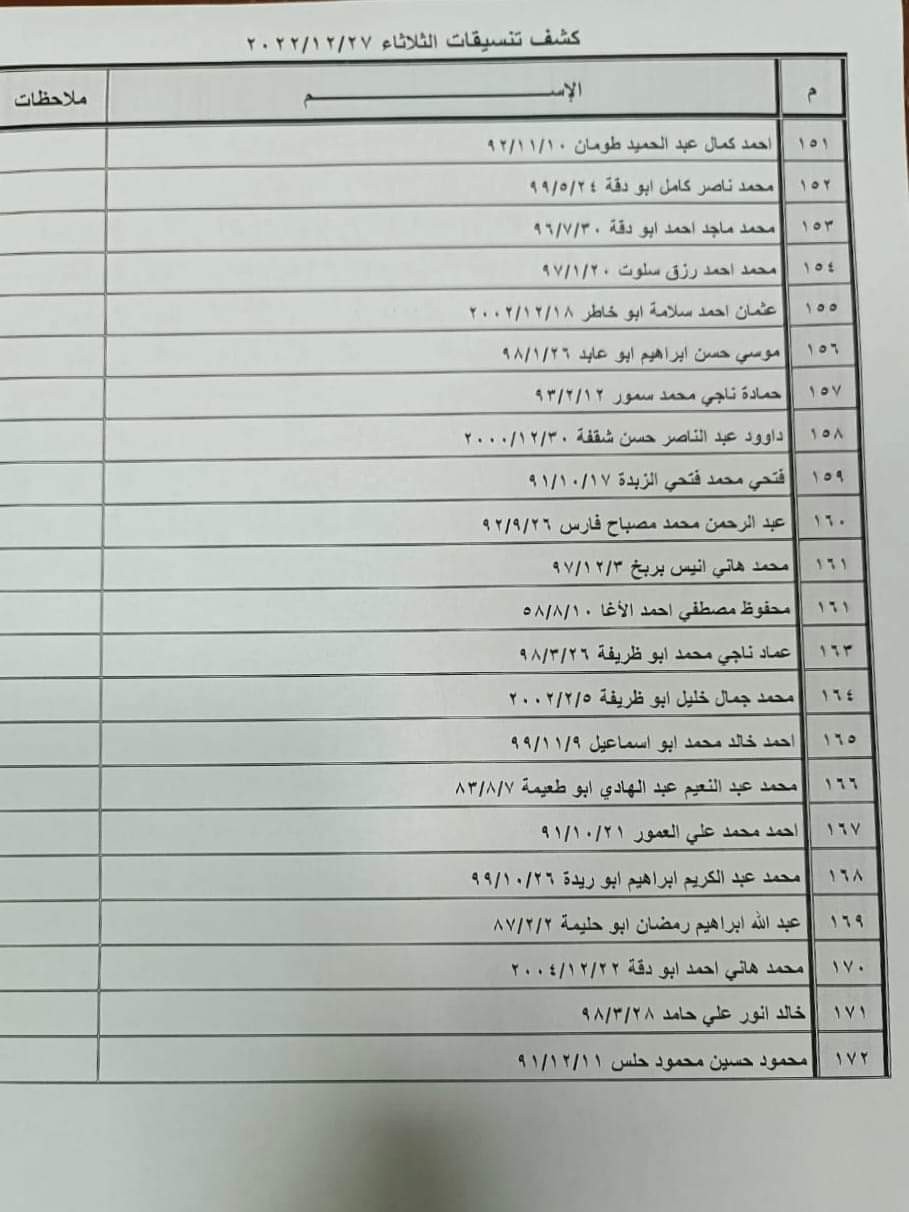 كشف تنسيقات الثلاثاء ٢٠٢٢/١٢/٢٧
م الإســــــــــم ملاحظات
١٥١ احمد كمال عبد الحميد طومان ٩٢/١١/١٠
١٥٢ محمد ناصر كامل ابو دقة ٩٩/٥/٢٤
١٥٣ محمد ماجد احمد ابو دقة ٩٦/٧/٣٠
١٥٤ محمد احمد رزق سلوت ٩٧/١/٢٠
١٥٥ عثمان احمد سلامة ابو خاطر ٢٠٠٢/١٢/١٨
١٥٦ موسي حسن ابراهيم ابو عابد ٩٨/١/٢٦
١٥٧ حمادة ناجي محمد سمور ٩٣/٢/١٢
١٥٨ داوود عبد الناصر حسن شقفة ٢٠٠٠/١٢/٣٠
١٥٩ فتحي محمد فتحي الزبدة ٩١/١٠/١٧
١٦٠ عبد الرحمن محمد مصباح فارس ٩٢/٩/٢٦
١٦١ محمد هاني انيس بربخ ٩٧/١٢/٣
١٦١ محفوظ مصطفي احمد الأغا ٥٨/٨/١٠
١٦٣ عماد ناجي محمد ابو ظريفة ٩٨/٣/٢٦
١٦٤ محمد جمال خليل ابو ظريفة ٢٠٠٢/٢/٥
١٦٥ احمد خالد محمد ابو اسماعيل ٩٩/١١/٩
١٦٦ محمد عبد النعيم عبد الهادي ابو طعيمة ٨٣/٨/٧
١٦٧ احمد محمد علي العمور ٩١/١٠/٢١
١٦٨ محمد عبد الكريم ابراهيم ابو ريدة ٩٩/١٠/٢٦
١٦٩ عبد الله ابراهيم رمضان ابو حليمة ٨٧/٢/٢
١٧٠ محمد هاني احمد ابو دقة ٢٠٠٤/١٢/٢٢
١٧١ خالد انور علي حامد ٩٨/٣/٢٨
١٧٢ محمود حسين محمود حلس ٩١/١٢/١١